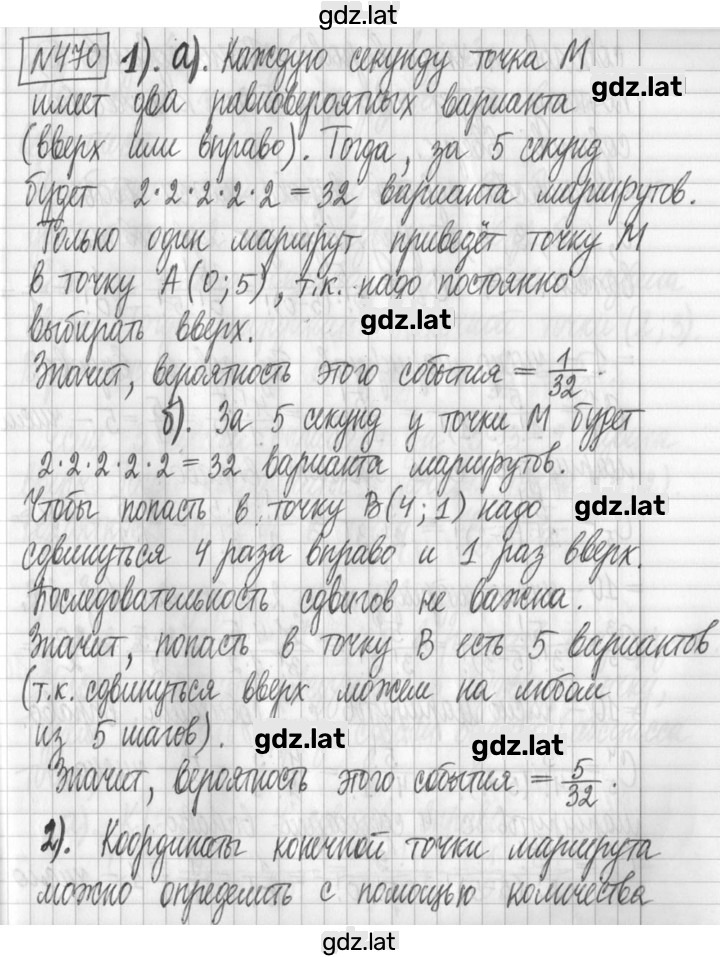 gdz.lat
№470 1). а). Каждую секунду точка М
gdz.lat
имеет два равновероятных варианта
(вверх или вправо). Тогда, за 5 секунд
будет 2·2·2·2·2=32 варианта маршрутов.
Только один маршрут приведёт точку М
в точку А(0;5), т.к. надо постоянно
выбирать вверх.
gdz.lat
Значит, вероятность этого события = 1/32.
б). За 5 секунд у точки М будет
2·2·2·2·2=32 варианта маршрутов.
Чтобы попасть в точку В(4;1) надо
gdz.lat
сдвинуться 4 раза вправо и 1 раз вверх.
Последовательность сдвигов не важна.
Значит, попасть в точку В есть 5 вариантов
(т.к. сдвинуться вверх можем на любом
из 5 шагов).
gdz.lat
gdz.lat
Значит, вероятность этого события = 5/32.
2). Координаты конечной точки маршрута
можно определить с помощью количества
gdz.lat